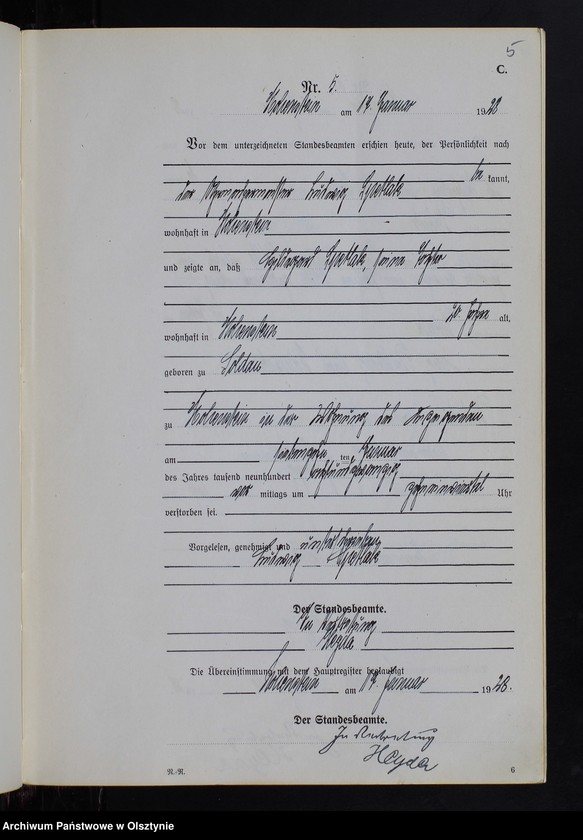 5
C.
Nr. 5.
Hohenstein am 17. Januar 1928
Vor dem unterzeichneten Standesbeamten erschien heute, der Persönlichkeit nach
be kannt,
der Ludwig
wohnhaft in Hohenstein
und zeigte an, daß Hildegard seine Tochter
20 Jahre alt,
wohnhaft in Hohenstein
geboren zu Soldau
zu Hohenstein in der Wohnung des Anzeigenden
am ten Januar
des Jahres tausend neunhundert achtundzwanzig
vor mittags um Uhr
verstorben sei.
Vorgelesen, genehmigt und unterschrieben
Ludwig
Der Standesbeamte.
In Vertretung
Die Übereinstimmung mit dem Hauptregister beglaubigt
Hohenstein am 17. Januar 1928.
Der Standesbeamte.
In Vertretung
N.-R.
6
Archiwum Państwowe w Olsztynie